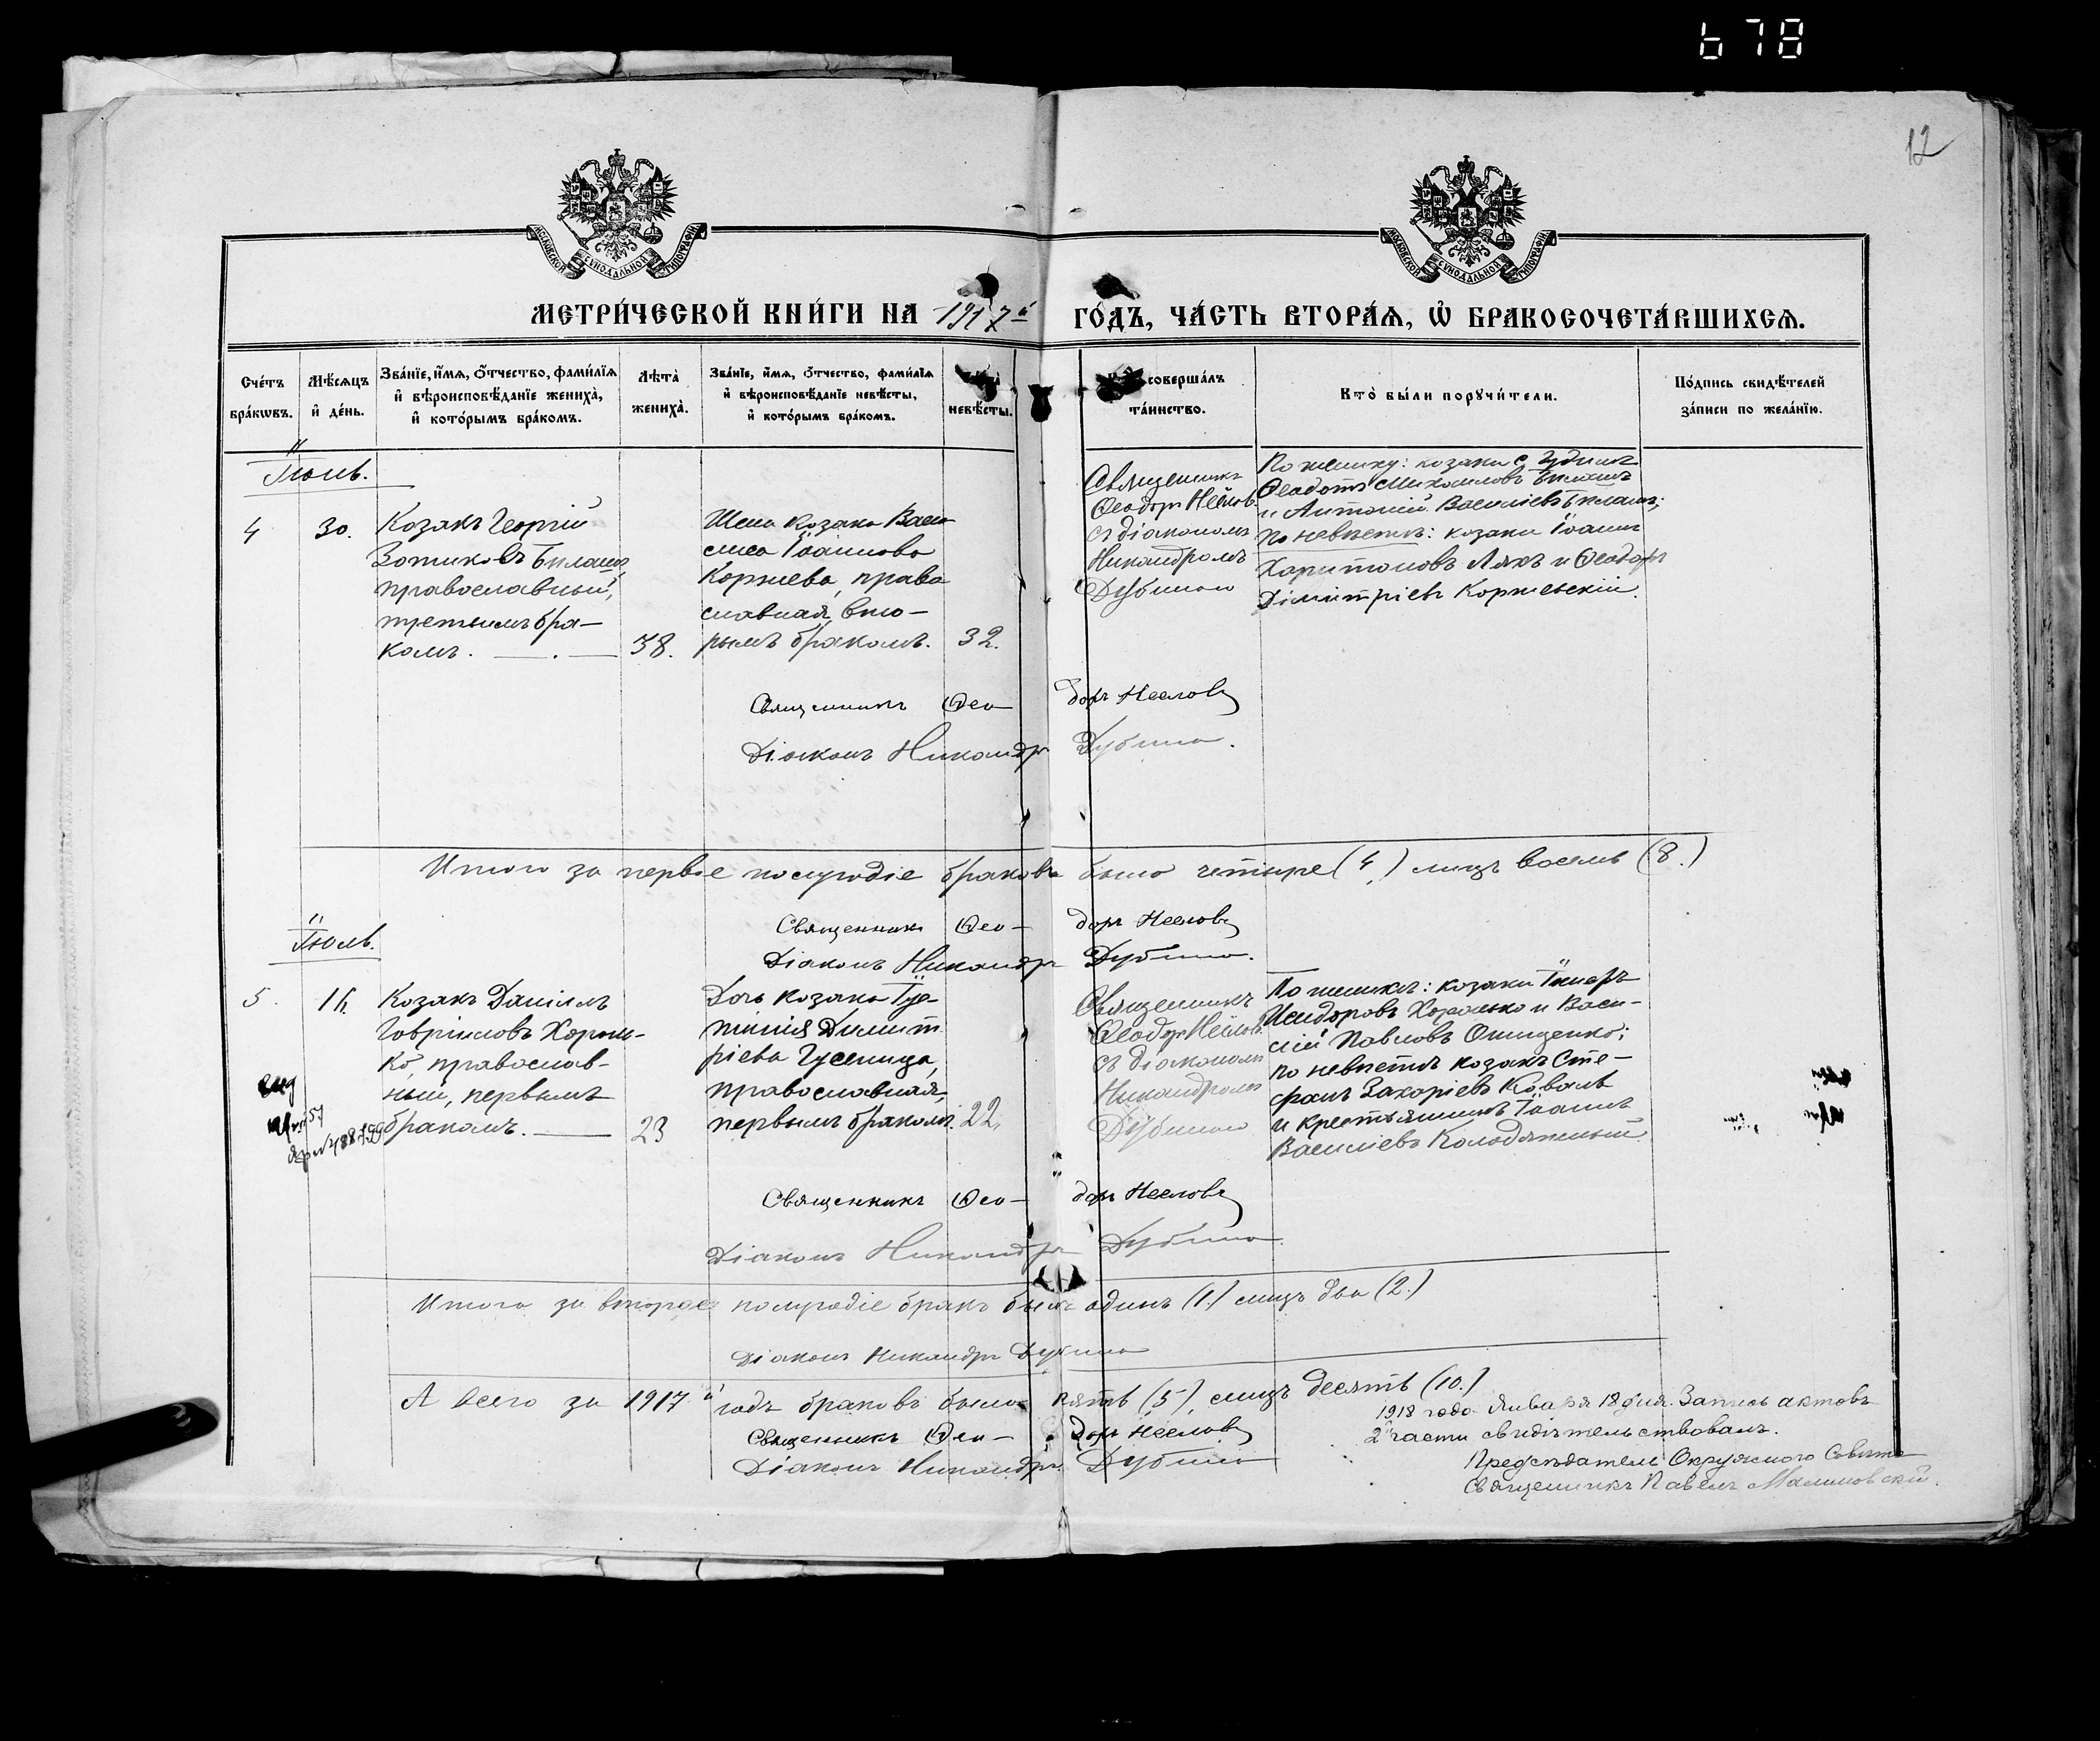 678
12
МЕТРИ́ЧЕСКОЙ КНИ́ГИ НА 1917й ГО́ДЪ, ЧА́СТЬ ВТОРА́Я, Ѡ҆ БРАКОСОЧЕТА́ВШИХСЯ.
Сче́тъ бра́кωвъ.
Мѣ́сяцъ и҆ де́нь.
Зва́нїе, и҆́мя, о҆́тчество, фами́лїя и҆ вѣроисповѣ́данїе жениха̀, и҆ кото́рымъ бра́комъ.
Лѣта̀ жениха̀.
Зва́нїе, и҆́мя, о҆́тчество, фами́лїя и҆ вѣроисповѣ́данїе невѣ́сты, и҆ кото́рымъ бра́комъ.
невѣ́сты.
соверша́лъ та́инство.
Кто̀ бы́ли порꙋчи́тели.
По́дпись свидѣ́телей за́писи по жела́нїю.
4
30.
Козакъ Георгій
Зотиковъ Билашъ,
православный,
третьимъ бра-
комъ.
38.
козака Васи
Іоаннова
Коржева, право
славная, вто-
рымъ бракомъ.
32.
Священникъ
Ѳеодоръ Неѣлов
съ діакономъ
Никандромъ
Дубиною
По жениху: козаки с.
Ѳеодотъ Михаиловъ Билашъ
и Антоній Василіевъ Билашъ;
по невѣстѣ: козаки Іоаннъ
Харитоновъ Ляхъ и Ѳеодоръ
Димитріевъ Коржевскій.
Священникъ Ѳео- доръ Неелов
Діаконъ Никандръ Дубина.
Итого за первое полугодіе браковъ было четыре (4.) лицъ восемь (8.)
Священникъ Ѳео- доръ Неелов
Іюль.
Діаконъ Никандръ Дубина.
5.
Козакъ Даніилъ
Гавріиловъ Хороль-
ко, православ-
ный, первымъ
бракомъ.
23
Дочь козака
Димит
ріева Гусеница,
православная,
первымъ бракомъ.
22.
Священникъ
Ѳеодоръ Неѣлов
съ діакономъ
Никандромъ
Дубиною
По женихѣ: козаки
Исидоровъ Хоролько и Васи-
лій Павловъ Онищенко;
по невѣстѣ козакъ Сте-
фанъ Захаріевъ Коваль
и крестьянинъ Іоаннъ
Василіевъ Колодяжный.
Священникъ Ѳео- доръ Неелов
Діаконъ Никандръ Дубина.
Итого за второе полугодіе бракъ былъ одинъ (1.) лицъ два (2.)
Діаконъ Никандръ Дубина
А всего за 1917й годъ браковъ было пять (5), лицъ десять (10.)
Священникъ Ѳео- доръ Неелов
Діаконъ Никандръ Дубина
1918 года Января 18 дня. Запись актовъ
2й части свидѣтельствовалъ.
Предсѣдатель Окружного Совѣта
Священникъ Павелъ Малиновскій.